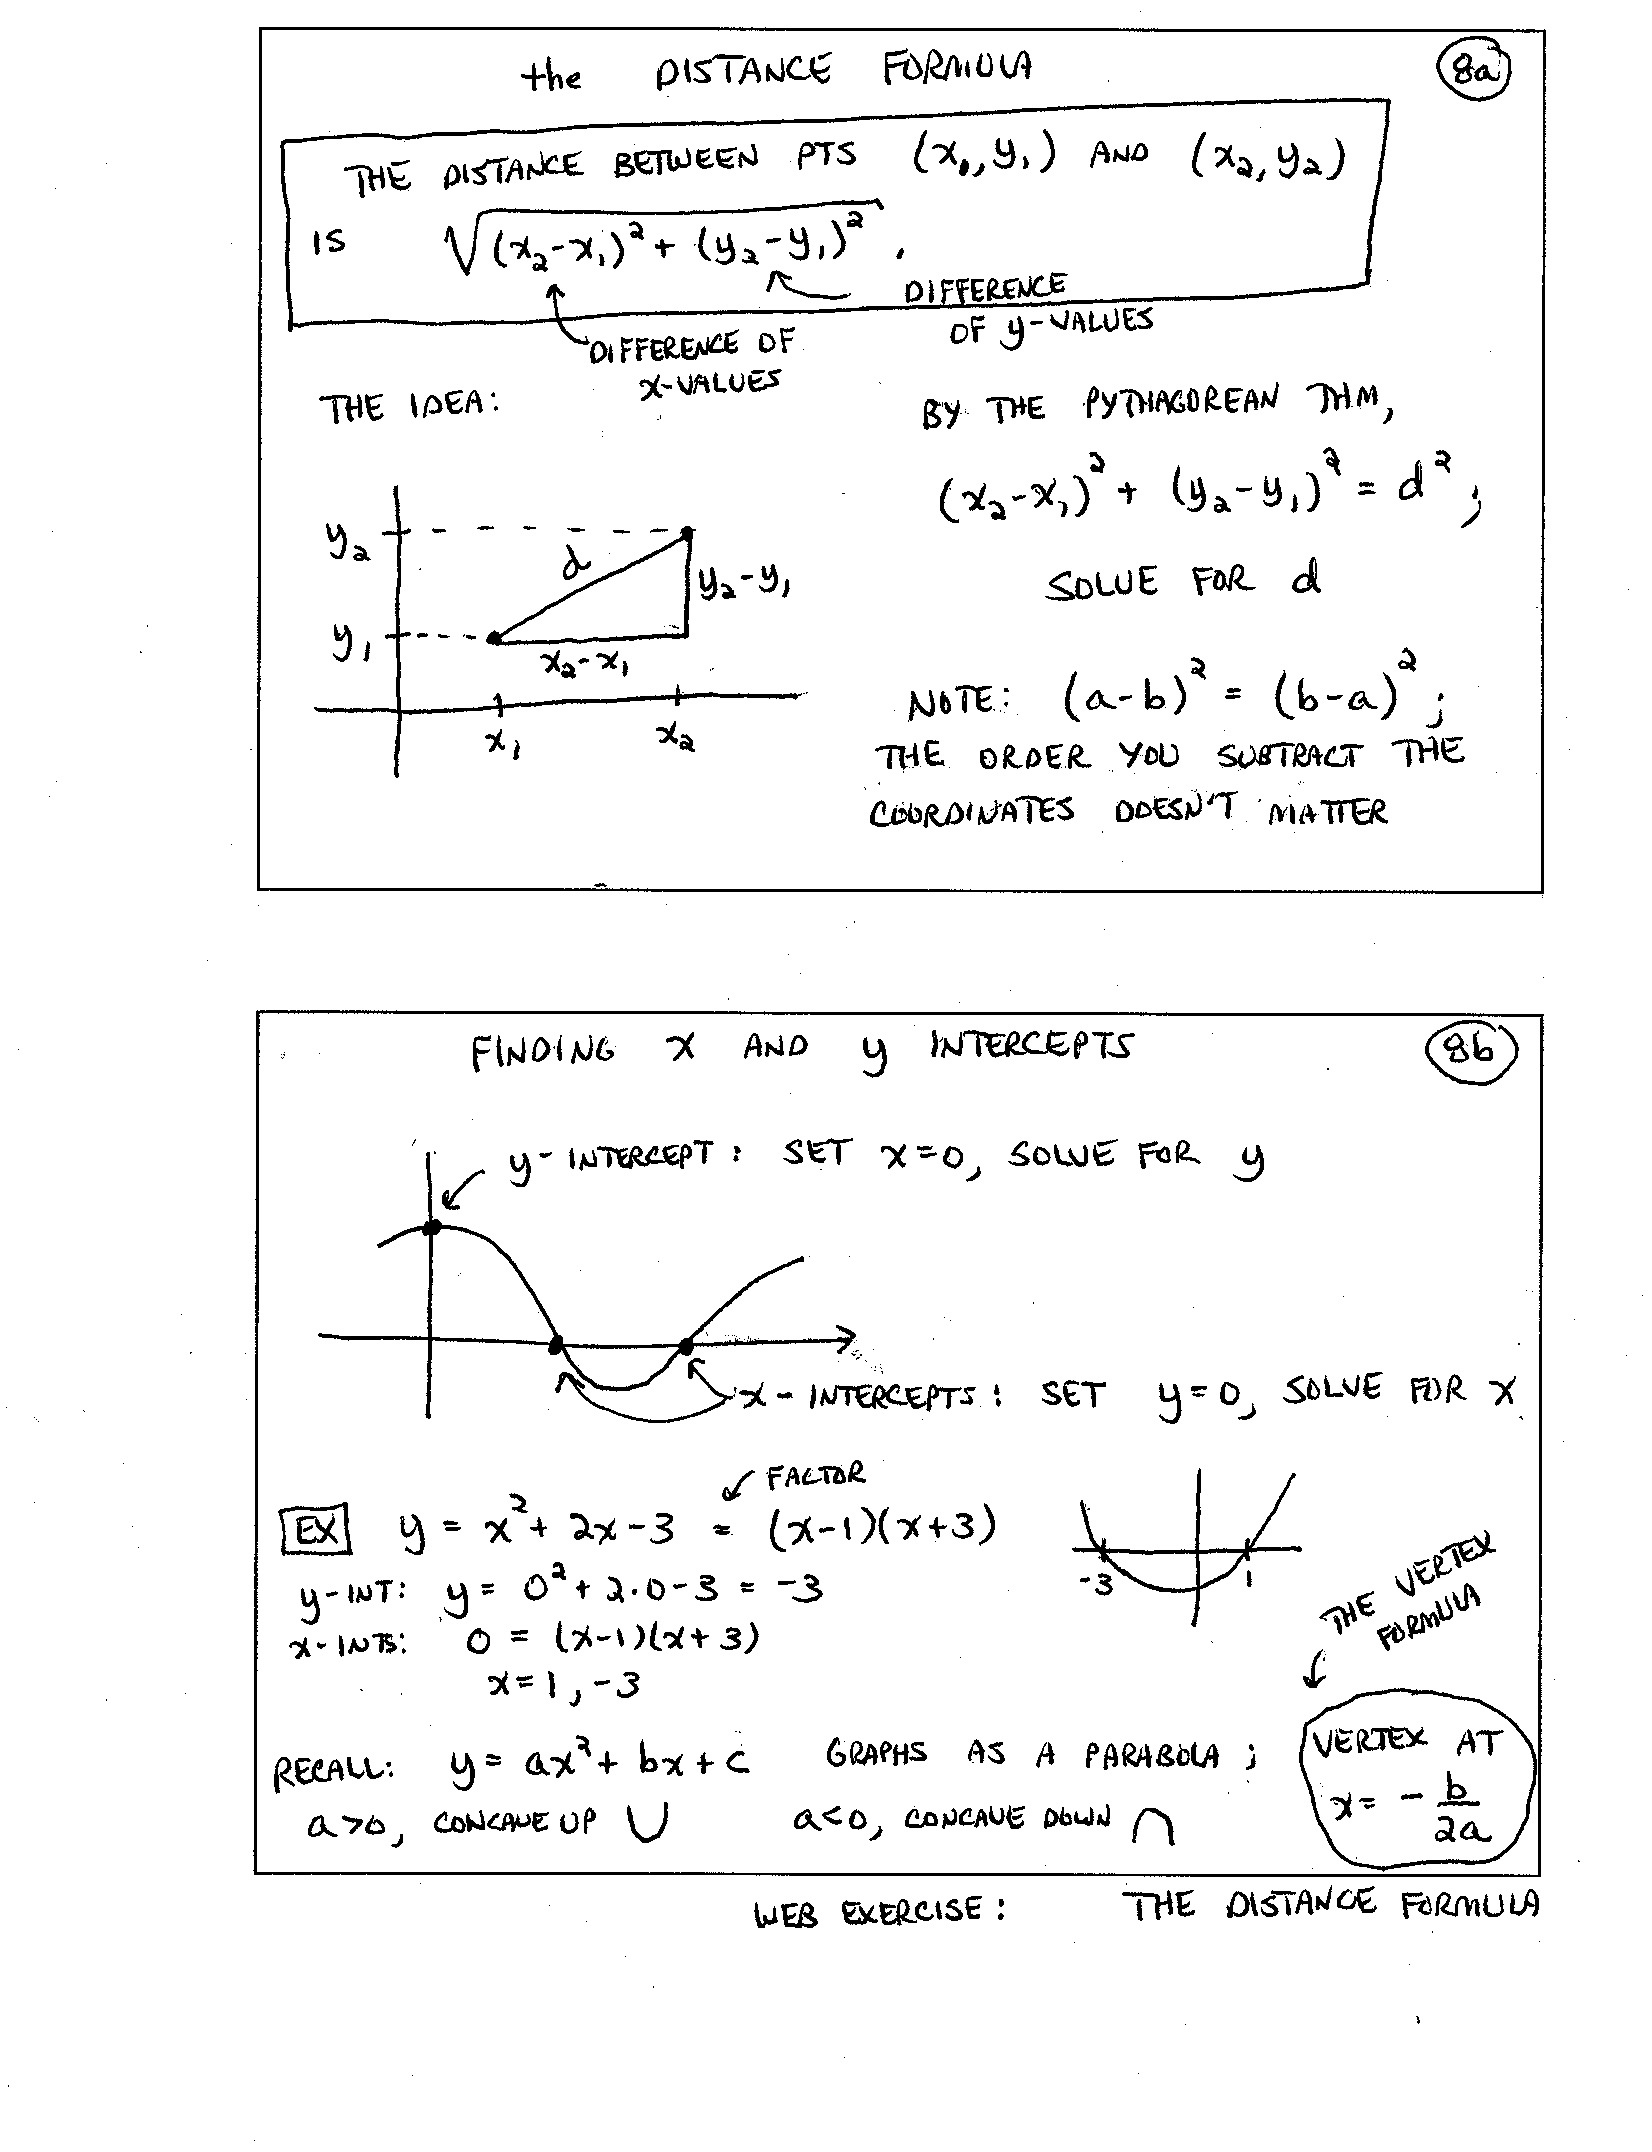 the DISTANCE FORMULA
8a
THE DISTANCE BETWEEN PTS (x₁,y₁) AND (x₂,y₂)
IS √((x₂-x₁)² + (y₂-y₁)²) .
DIFFERENCE
OF y-VALUES
DIFFERENCE OF
x-VALUES
THE IDEA:
y₂
d
y₂-y₁
y₁
x₂-x₁
x₁
x₂
BY THE PYTHAGOREAN THM,
(x₂-x₁)² + (y₂-y₁)² = d² ;
SOLVE FOR d
NOTE: (a-b)² = (b-a)² ;
THE ORDER YOU SUBTRACT THE
COORDINATES DOESN'T MATTER
FINDING x AND y INTERCEPTS
8b
y-INTERCEPT: SET x=0, SOLVE FOR y
x-INTERCEPTS: SET y=0, SOLVE FOR x
FACTOR
EX y = x² + 2x-3 = (x-1)(x+3)
y-INT: y = 0² + 2·0-3 = -3
x-INTS: 0 = (x-1)(x+3)
x=1, -3
-3
1
THE VERTEX
FORMULA
RECALL: y = ax² + bx + c GRAPHS AS A PARABOLA ;
a>0, CONCAVE UP ∪ a<0, CONCAVE DOWN ∩
VERTEX AT
x = - b/2a
WEB EXERCISE: THE DISTANCE FORMULA